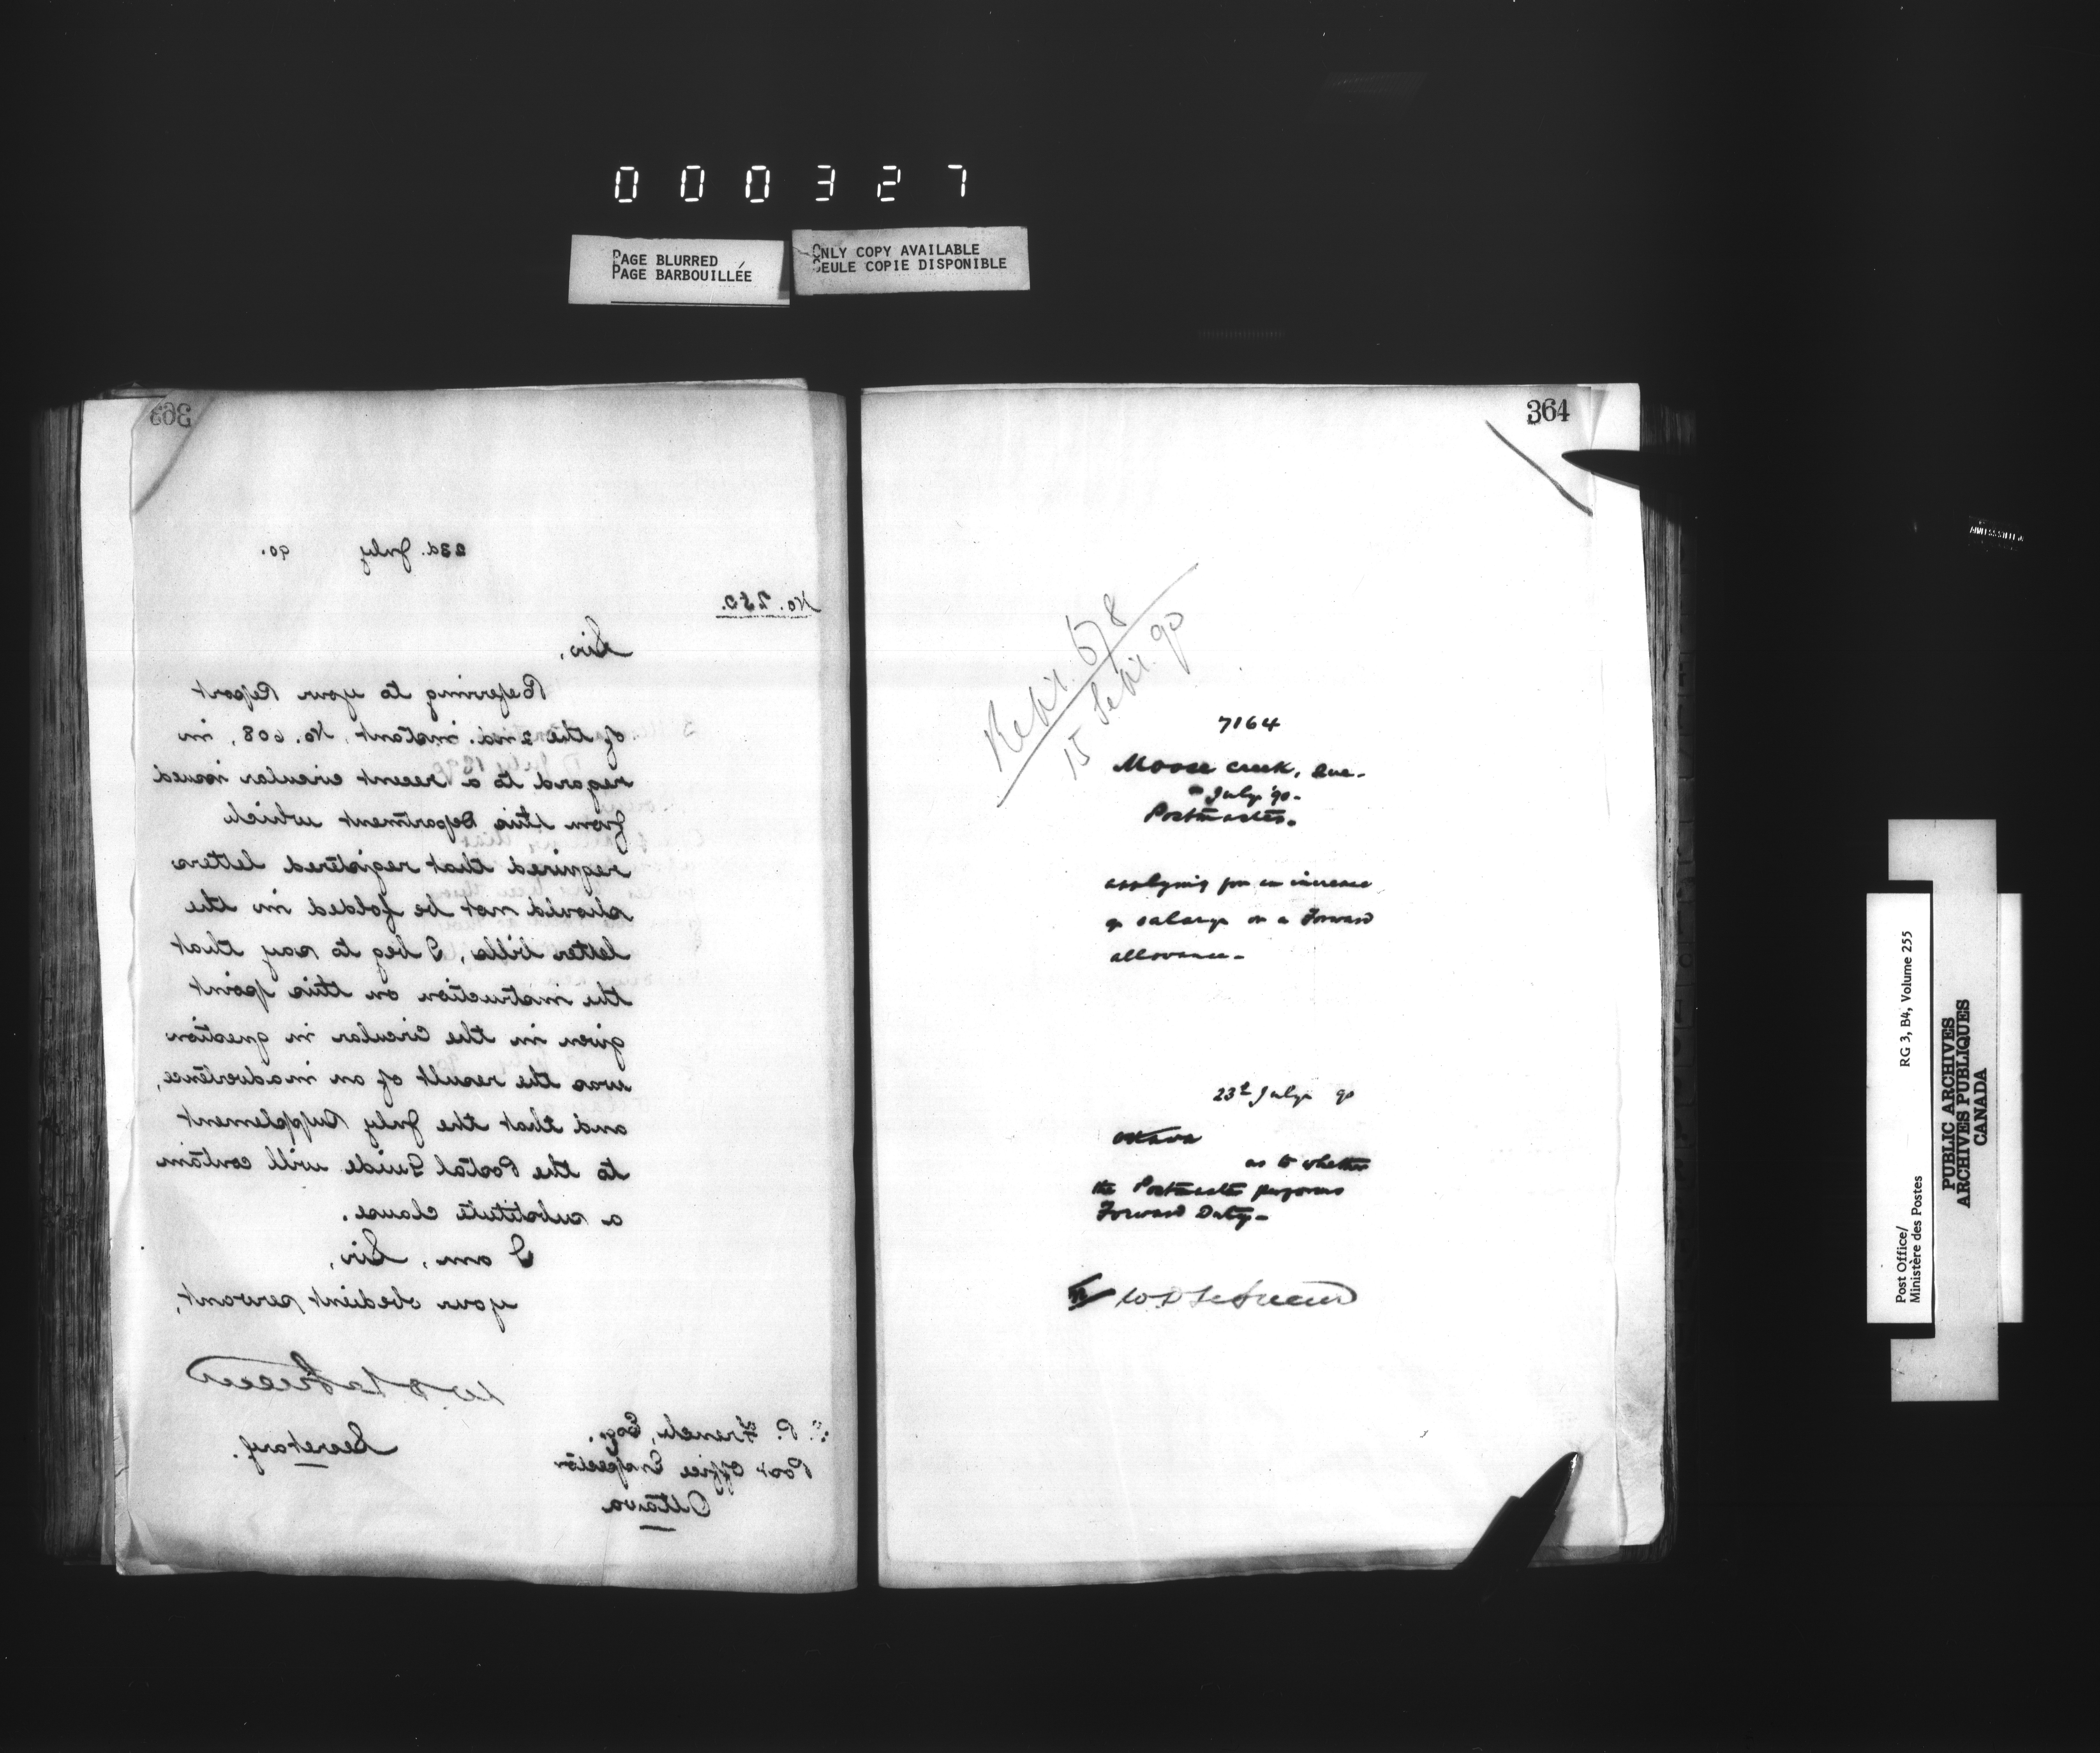 000327
PAGE BLURRED
PAGE BARBOUILLÉE
ONLY COPY AVAILABLE
SEULE COPIE DISPONIBLE
363
23d. July 90.
No. 250.
Sir,
Referring to your Report
of the 2nd. instant, No. 608, in
regard to a recent circular issued
from this Department which
required that registered letters
should not be folded in the
letter bills, I beg to say that
the instruction on this point
given in the Circular in question
was the result of an inadvertence,
and that the July Supplement
to the Postal Guide will contain
a substitute clause.
I am, Sir,
your obedient servant,
Secretary.
P. French, Esq.
Post Office Inspector
Ottawa
364
678
15 Sept. 90
7164
Moose Creek,
July 90.
Postmaster.
applying for an increase
of salary or a Forward
allowance.
23d July 90
Ottawa
as to whether
the Postmaster performs
Forward Duty.
Post Office/
Ministère des Postes
RG 3, B4, Volume 255
PUBLIC ARCHIVES
ARCHIVES PUBLIQUES
CANADA